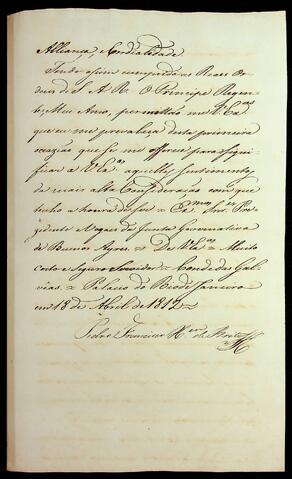 Alliança, e Cordialidade
Tendo assim cumprido as Reaes Or-
dens de S. A. R. O Principe Regen-
te, Meu Amo, permittão me V. Eas
que eu me prevaleça desta primeira
occazião que se me offerece para signi-
ficar a V. Eas aquelles sentimentos
de mais alta Consideração com que
tenho a honra de ser = Exmos Snres Pre-
zidente e Vogaes da Junta Guvernativa
de Buenos Ayres = De V. Eas = Muito
Certo e Seguro Servidor = Conde das Gal-
vêas. = Palacio do Rio de Janeiro
em 18 de Abril de 1812 =
Pedro Francisco